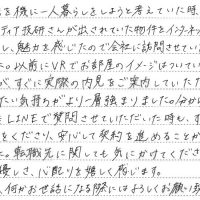 を機に一人暮らしをしようと考えていた時、
ティブ技研さんが出されていた物件をインターネッ
し、魅力を感じたので会社に訪問させてい
た。以前にVRでお部屋のイメージはついていま
が、すぐに実際の内見をご案内していただ
たい気持ちがより一層強まりました。分から
もLINEで質問させていただいた時も、す
をくださり、安心して契約を進めることが
た。転職先に関しても気にかけてくださ
優しさ、心配りを嬉しく感じます。
、何かお世話になる際にはよろしくお願い致